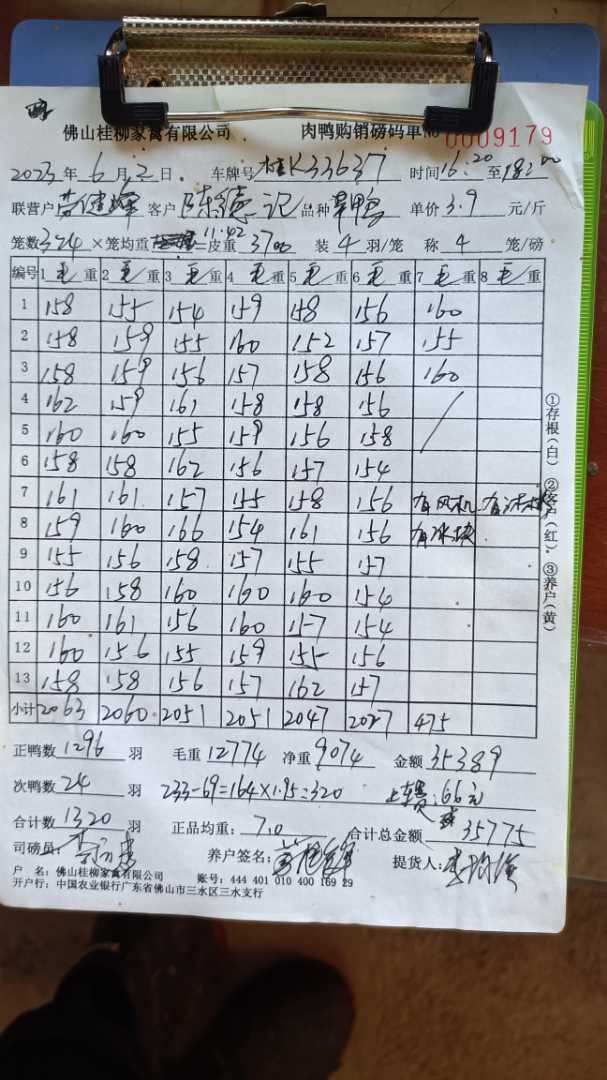 佛山桂柳家禽有限公司 肉鸭购销磅码单 No 0009179
2023年6月2日 车牌号 桂K33637 时间16:20至18:00
联营户 客户 陈德记 品种 单价3.9元/斤
笼数324×笼均重11.42=皮重3700 装4羽/笼 称4笼/磅
编号 1毛重 2毛重 3毛重 4毛重 5毛重 6毛重 7毛重 8毛重
1 158 155 154 159 158 156 160
2 158 159 155 160 152 157 155
3 158 159 156 157 158 156 160
4 162 159 161 158 158 156
5 160 160 155 159 156 158
6 158 158 162 156 157 154
7 161 161 157 155 158 156 有风机
8 159 160 166 154 161 156 有冰块
9 155 156 158 157 155 157
10 156 158 160 160 160 154
11 160 161 156 160 157 154
12 160 156 155 159 155 156
13 158 158 156 157 162 157
小计 2063 2060 2051 2051 2047 2027 475
①存根(白) ②客户(红) ③养户(黄)
正鸭数1296羽 毛重12774 净重9074 金额35389
次鸭数24羽 233-69=164×1.95=320 上车费:66元
合计数1320羽 正品均重:7.0 合计总金额35775
司磅员: 养户签名: 提货人:
户 名:佛山桂柳家禽有限公司 账号:444 401 010 400 169 29
开户行:中国农业银行广东省佛山市三水区三水支行